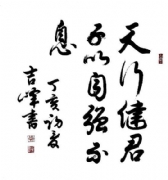 天行健君
子以自强不
息
丁亥诏友
吉峰書